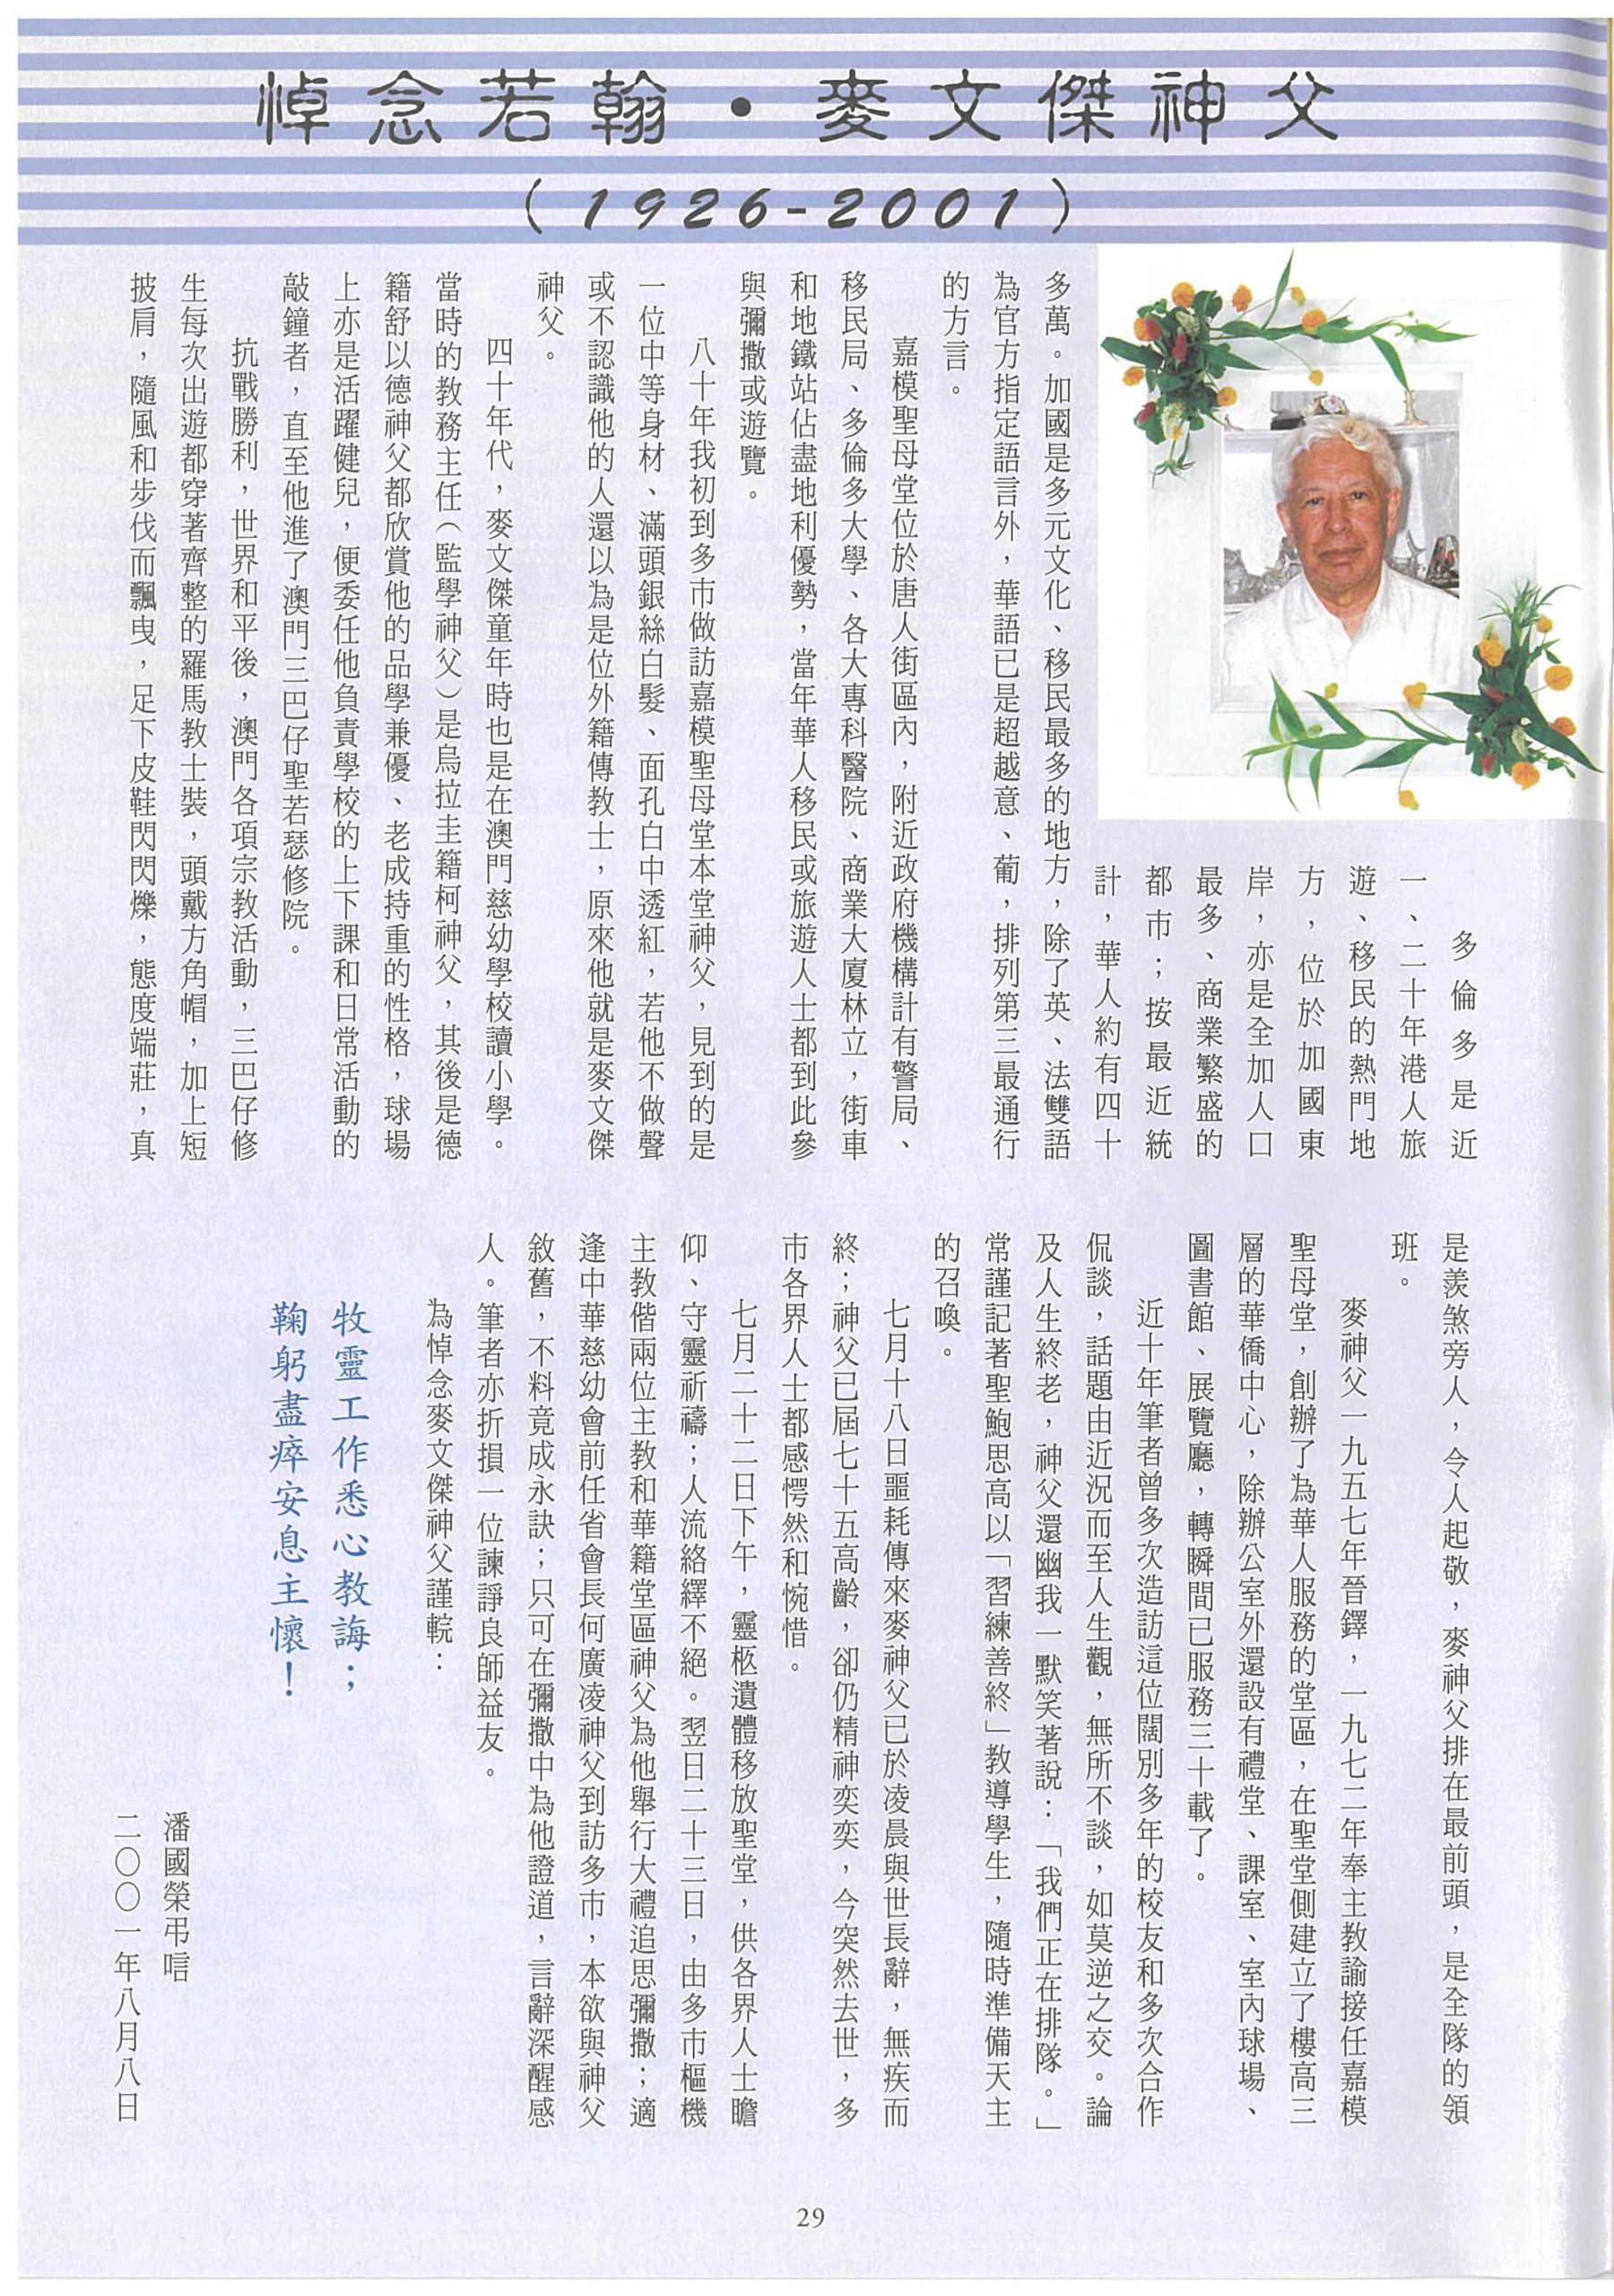 悼念若翰・麥文傑神父
(1926-2001)
多倫多是近
一、二十年港人旅
遊、移民的熱門地
方，位於加國東
岸，亦是全加人口
最多、商業繁盛的
都市；按最近統
計，華人約有四十
多萬。加國是多元文化、移民最多的地方，除了英、法雙語
為官方指定語言外，華語已是超越意、葡，排列第三最通行
的方言。
嘉模聖母堂位於唐人街區內，附近政府機構計有警局、
移民局、多倫多大學、各大專科醫院、商業大廈林立，街車
和地鐵站佔盡地利優勢，當年華人移民或旅遊人士都到此參
與彌撒或遊覽。
八十年我初到多市做訪嘉模聖母堂本堂神父，見到的是
一位中等身材、滿頭銀絲白髮、面孔白中透紅，若他不做聲
或不認識他的人還以為是位外籍傳教士，原來他就是麥文傑
神父。
四十年代，麥文傑童年時也是在澳門慈幼學校讀小學。
當時的教務主任（監學神父）是烏拉圭籍柯神父，其後是德
籍舒以德神父都欣賞他的品學兼優、老成持重的性格，球場
上亦是活躍健兒，便委任他負責學校的上下課和日常活動的
敲鐘者，直至他進了澳門三巴仔聖若瑟修院。
抗戰勝利，世界和平後，澳門各項宗教活動，三巴仔修
生每次出遊都穿著齊整的羅馬教士裝，頭戴方角帽，加上短
披肩，隨風和步伐而飄曳，足下皮鞋閃閃爍，態度端莊，真
是羨煞旁人，令人起敬，麥神父排在最前頭，是全隊的領
班。
麥神父一九五七年晉鐸，一九七二年奉主教諭接任嘉模
聖母堂，創辦了為華人服務的堂區，在聖堂側建立了樓高三
層的華僑中心，除辦公室外還設有禮堂、課室、室內球場、
圖書館、展覽廳，轉瞬間已服務三十載了。
近十年筆者曾多次造訪這位闊別多年的校友和多次合作
侃談，話題由近況而至人生觀，無所不談，如莫逆之交。論
及人生終老，神父還幽我一默笑著說：「我們正在排隊。」
常謹記著聖鮑思高以「習練善終」教導學生，隨時準備天主
的召喚。
七月十八日噩耗傳來麥神父已於凌晨與世長辭，無疾而
終；神父已屆七十五高齡，卻仍精神奕奕，今突然去世，多
市各界人士都感愕然和惋惜。
七月二十二日下午，靈柩遺體移放聖堂，供各界人士瞻
仰、守靈祈禱；人流絡繹不絕。翌日二十三日，由多市樞機
主教偕兩位主教和華籍堂區神父為他舉行大禮追思彌撒；適
逢中華慈幼會前任省會長何廣凌神父到訪多市，本欲與神父
敘舊，不料竟成永訣；只可在彌撒中為他證道，言辭深醒感
人。筆者亦折損一位諫諍良師益友。
為悼念麥文傑神父謹輓：
牧靈工作悉心教誨；
鞠躬盡瘁安息主懷！
潘國榮弔唁
二〇〇一年八月八日
29